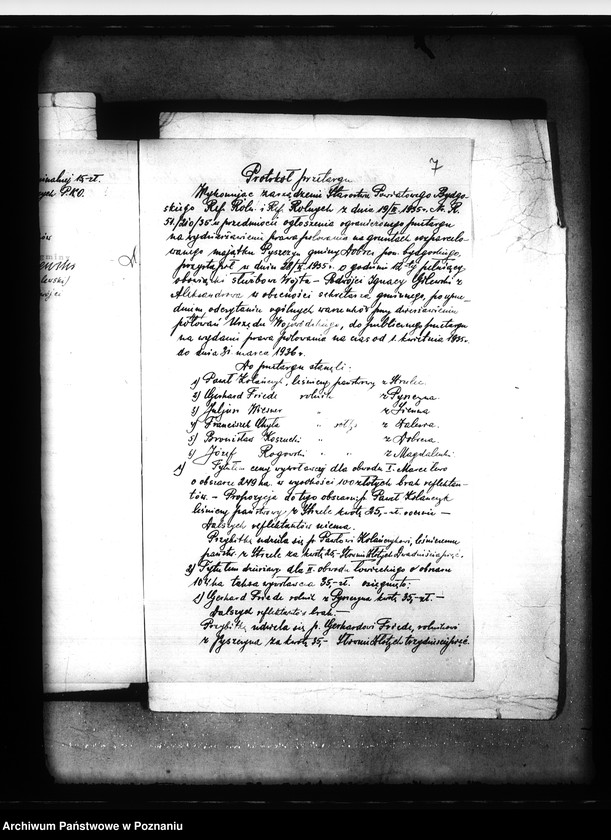 7
Protokół przetargu
Wykonując zarządzenie Starostwa Powiatowego Bydgo-
skiego Ref. Roln. i Ref. Rolnych z dnia 19/II 1935 r. Nr. R.
51/210/35 w przedmiocie ogłoszenia ograniczonego przetargu
na wydzierżawienie prawa polowania na gruntach rozparcelo-
wanego majątku Pyszczyn gminy Dobrcz pow. bydgoskiego,
przystąpił w dniu 28/II 1935 r. o godzinie 12-tej pełniący
obowiązki służbowe Wójta – Podwójci Ignacy
Aleksandrowa w obecności sekretarza gminnego po
dniem, odczytaniu ogólnych warunków przy dzierżawieniu
polowań Urzędu Wojewódzkiego, do publicznego przetargu
na wydanie prawa polowania na czas od 1. kwietnia 1935 r.
do dnia 31. marca 1936 r.
Do przetargu stanęli:
1) Paweł Kolańczyk, leśniczy państwowy z Strzelec
2) Gerhard Friede rolnik z Pyszczyna
3) Juljusz Wiesner " z Sienna
4) Franciszek Chyła " z
5) Bronisław Koszucki " " z Dobrcza
6) Józef Rogowski " " z Magdalenki
1) Tytułem ceny wywoławczej dla obwodu I.
o obszarze 249 ha. w wysokości 100 złotych brak reflektan-
tów. – Propozycja do tego obszaru: p. Paweł Kolańczyk
leśniczy państwowy z Strzelc kwotę 25,- zł. –
Dalszych reflektantów niema.
Przybitkę udziela się p. Pawłowi Kolańczykowi, leśniczemu
państw. z Strzelc za kwotę 25,- Słownie Złotych Dwadzieściapięć.
2) Tytułem dzierżawy dla II. obwodu łowieckiego o obszarze
104 ha taksa wywoławcza 35,- zł. osiągnięto:
1) Gerhard Friede rolnik z Pyszczyna kwotę 35,- zł. –
Dalszych reflektantów brak. –
Przybitkę udziela się p. Gerhardowi Friede, rolnikowi
z Pyszczyna za kwotę 35,- Słownie Złotych trzydzieścipięć.
15 zł.
P.K.O.
Archiwum Państwowe w Poznaniu